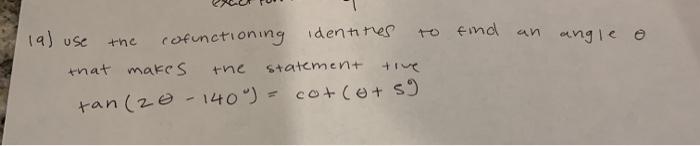 19) use the cofunctioning identities to find an angle θ
that makes the statement true
tan(2θ - 140°) = cot(θ + 5°)